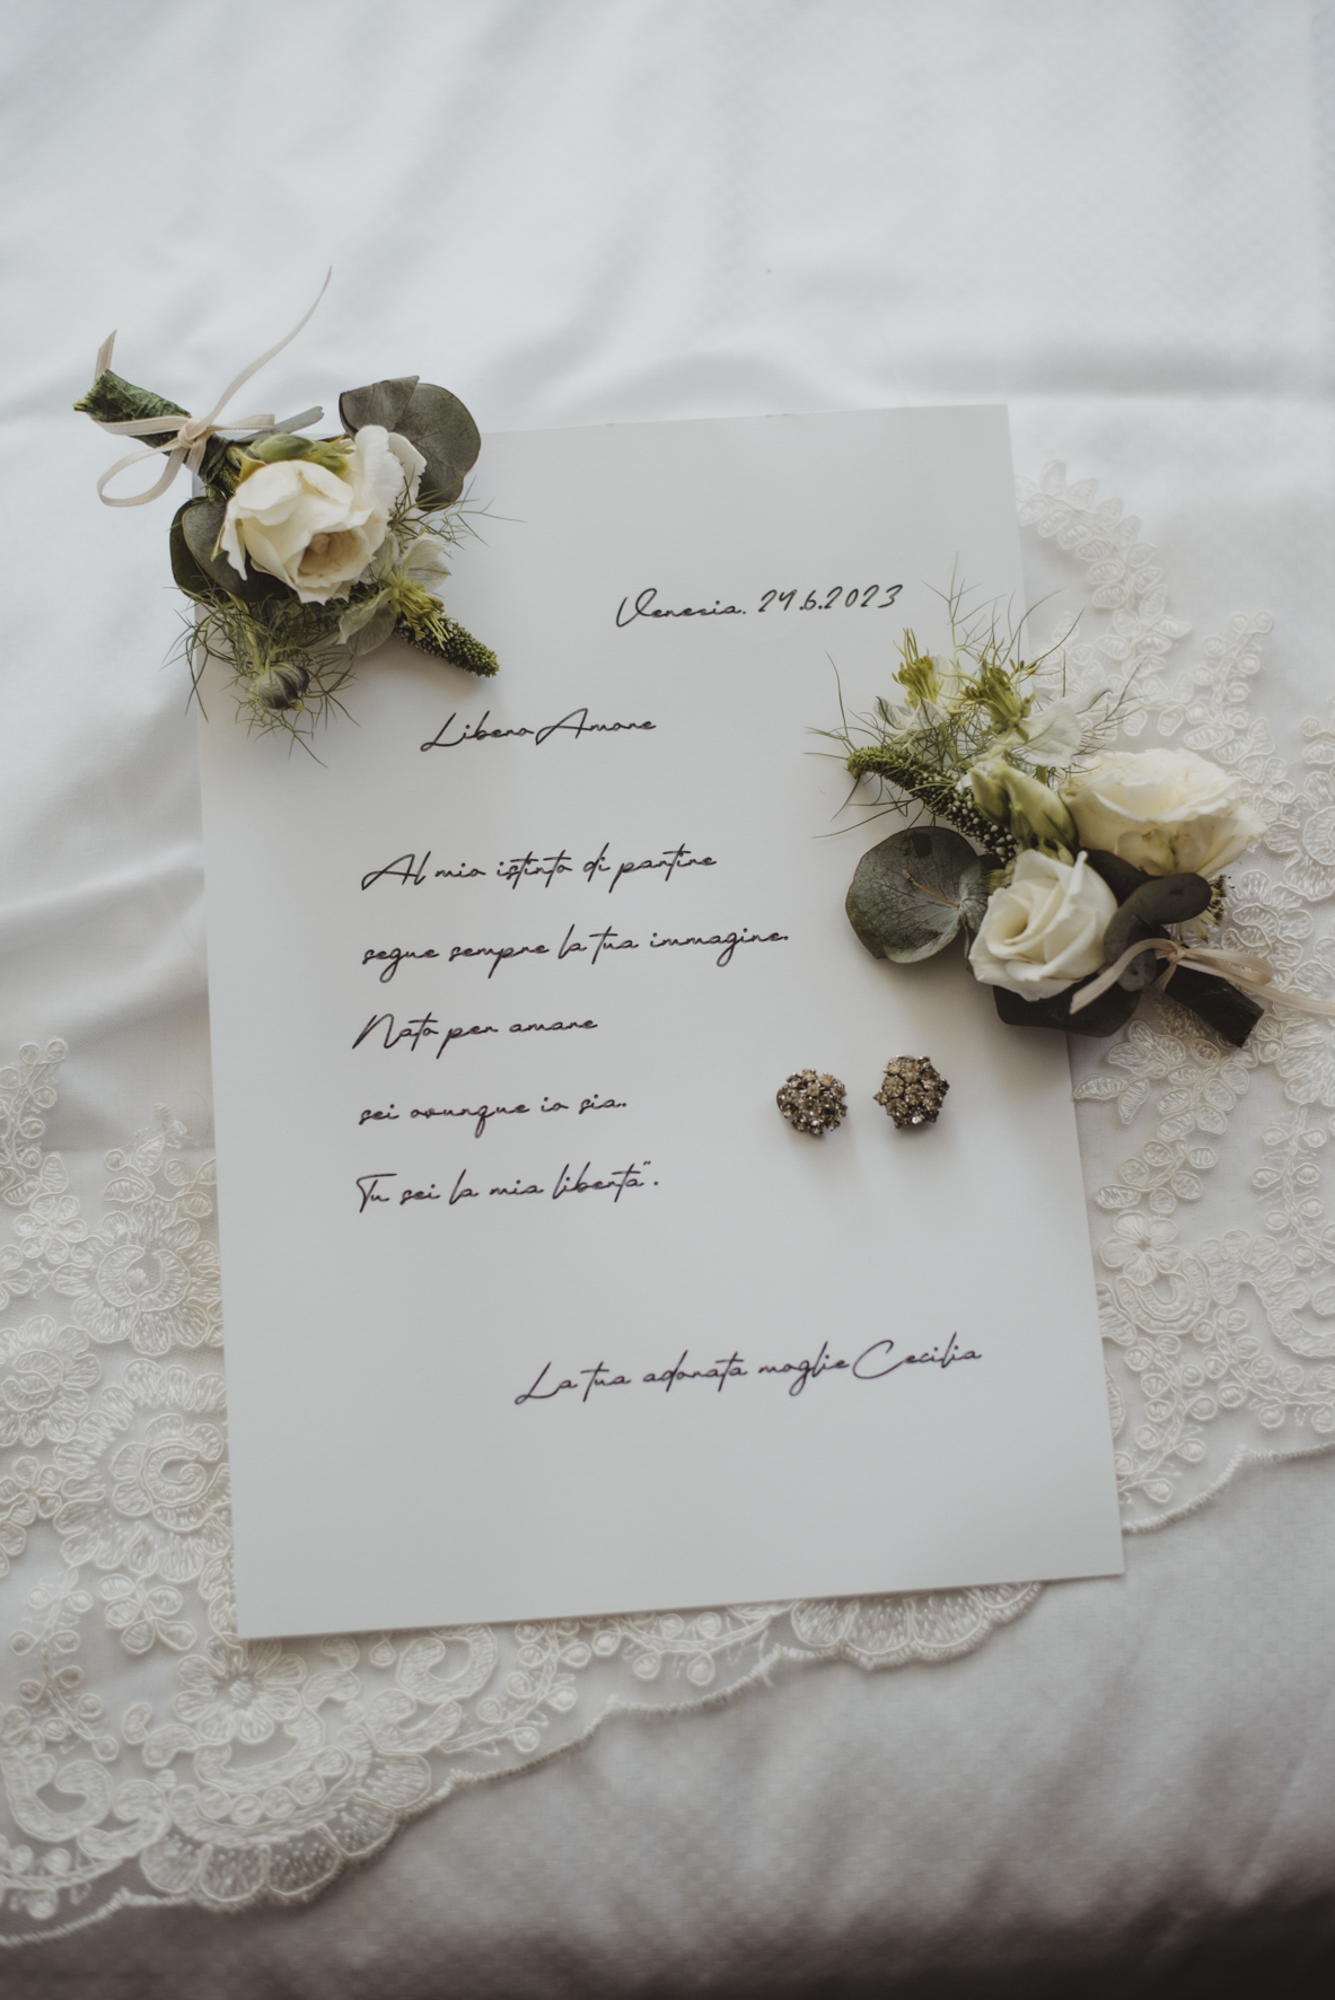 Venezia. 24.6.2023
Libero Amore
Al mio istinto di partire
segue sempre la tua immagine.
Nato per amare
sei ovunque io sia.
Tu sei la mia liberta".
La tua adorata moglie Cecilia